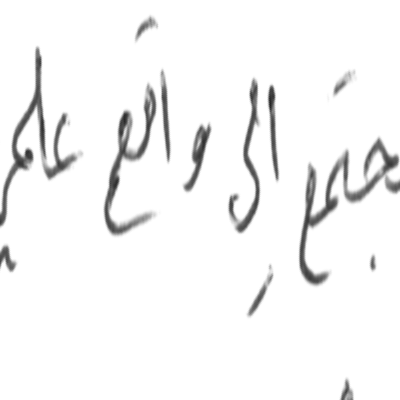 جتمع إلى واقع علمي